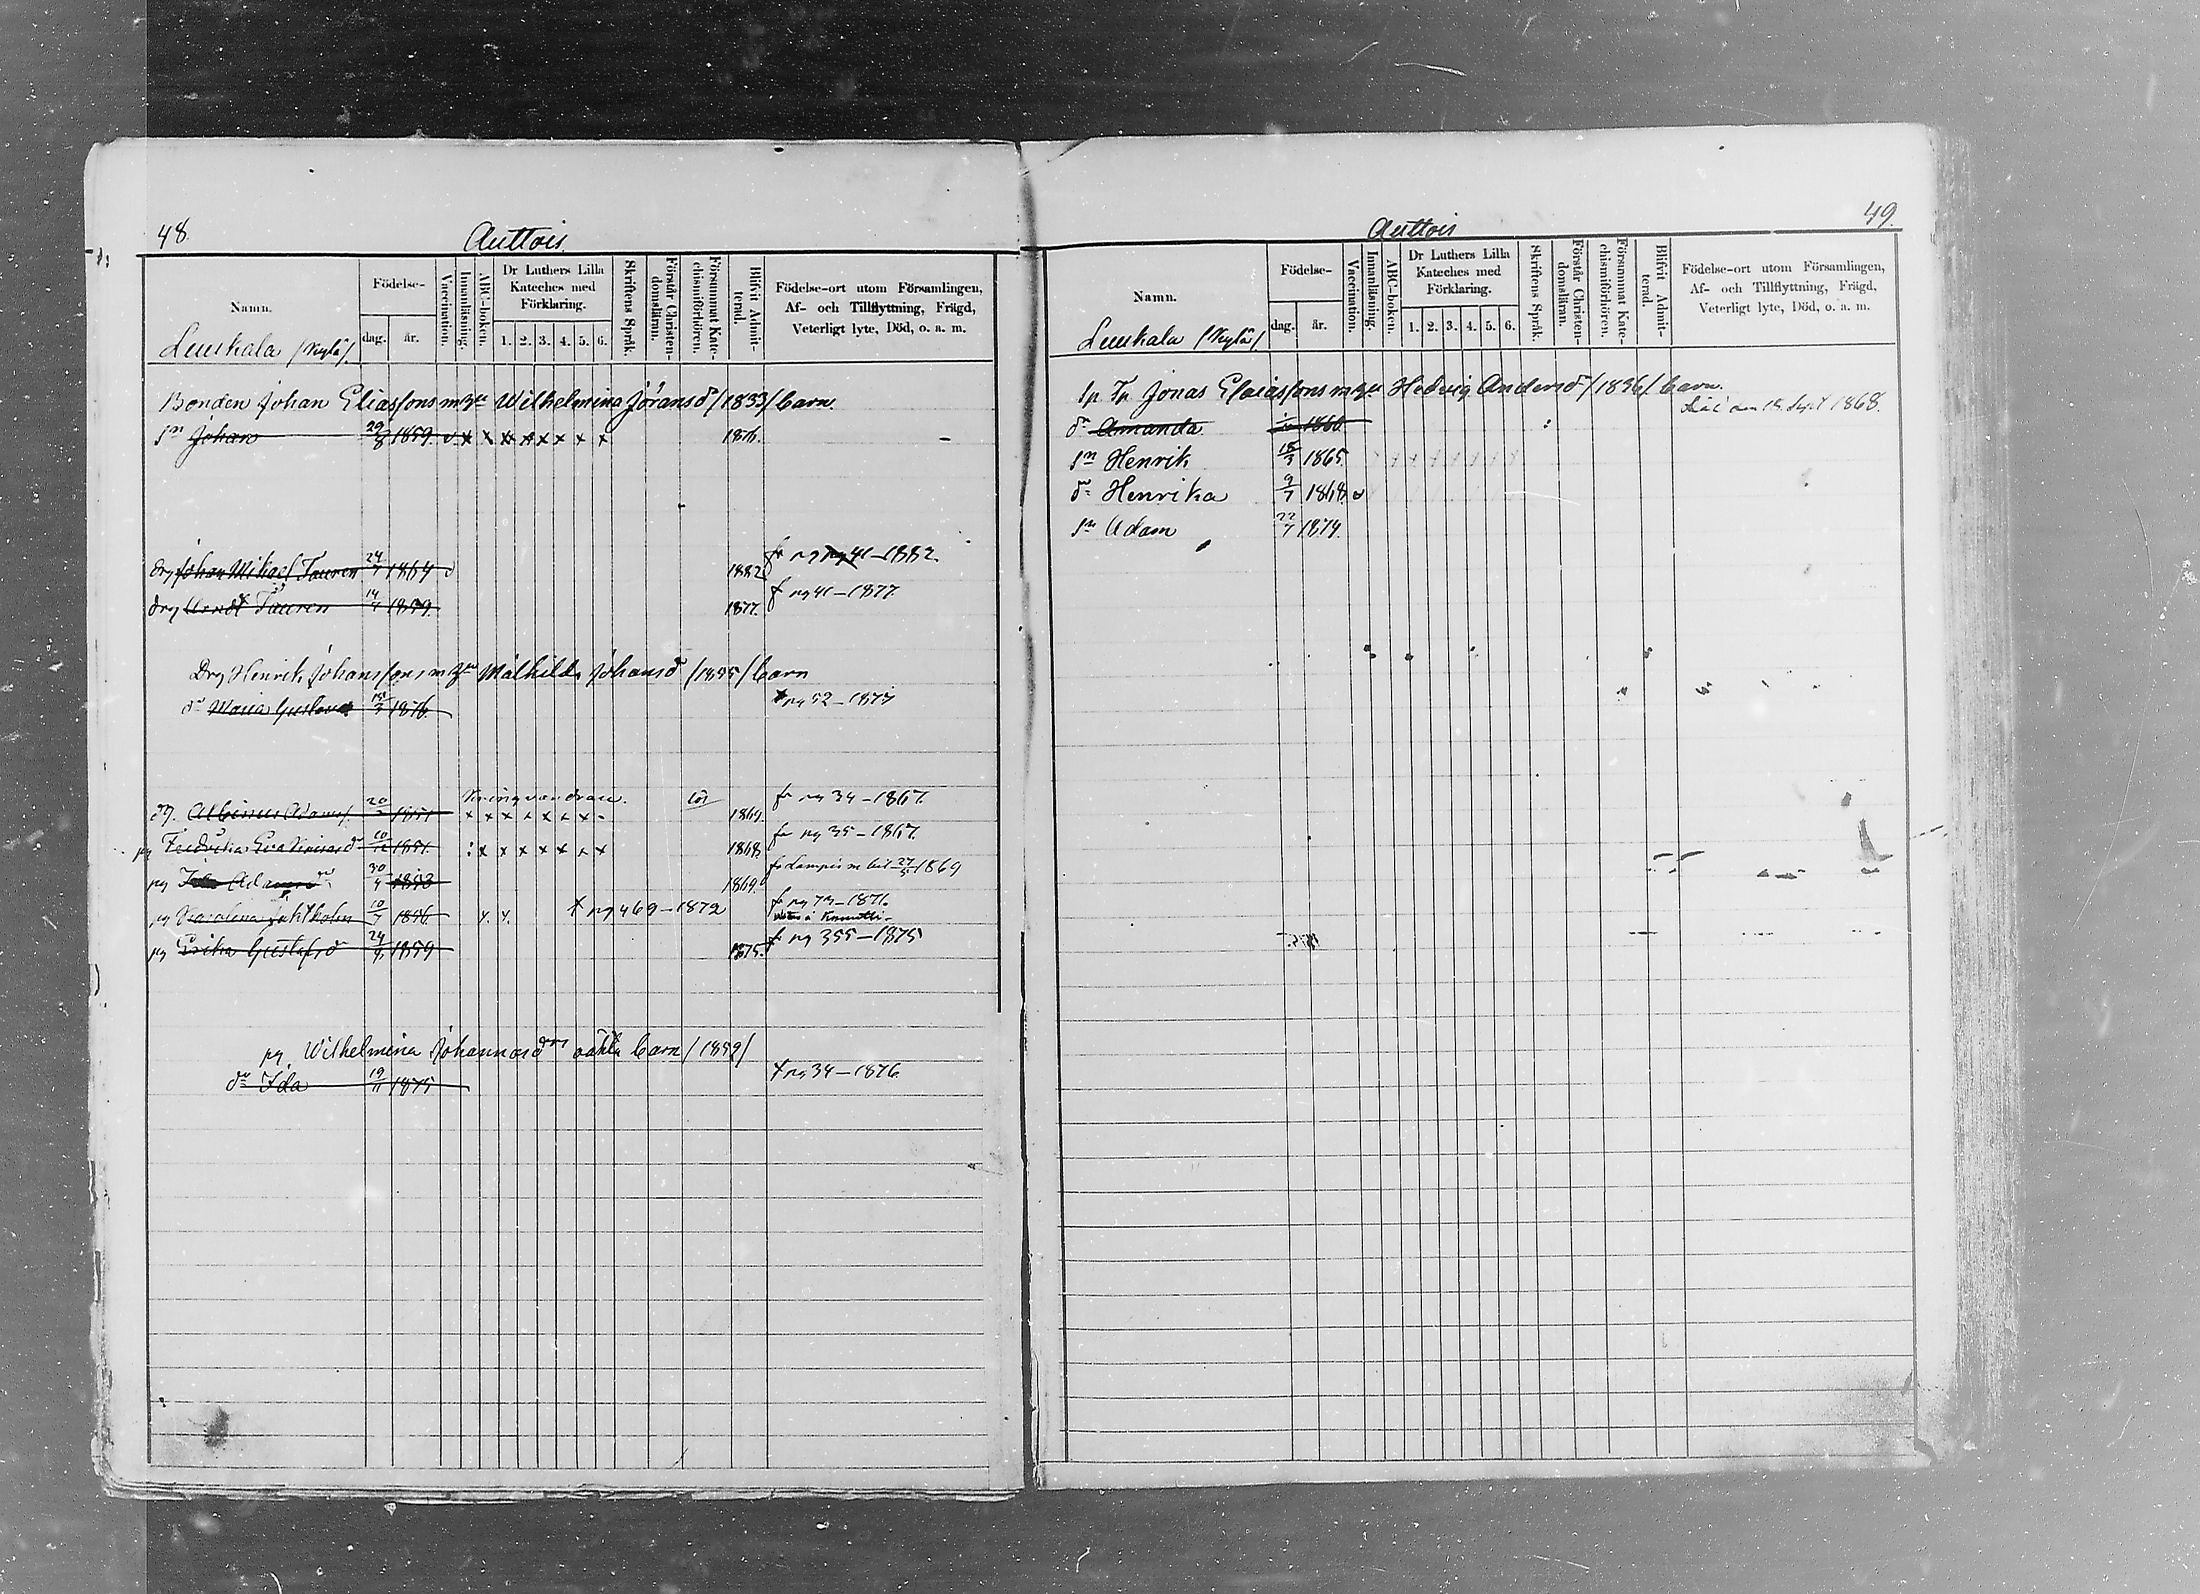 48.
Auttois
Namn.
Födelse-
dag.
år.
Vaccination.
Innanläsning.
ABC-boken.
Dr Luthers Lilla
Kateches med
Förklaring.
1. 2. 3. 4. 5. 6.
Skriftens Språk.
Förstår Christen-
domsläran.
Försummat Kate-
chismiförhören.
Blifvit Admit-
terad.
Födelse-ort utom Församlingen,
Af- och Tillflyttning, Frägd,
Veterligt lyte, Död, o. a. m.
Luuhala /Nylä/.
Bonden Johan Eliassons m hu Wilhelmina Jörans d /1833/ barn.
sn Johan 29/8 1859. v x x x x x x x x 1876.
drg Johan Mikael Tauren 24/7 1864 v 1882 fr pg 41-1882.
drg Tauren 14/4 1859. 1877. f pg 41-1877.
Drg Henrik Johanssons m hu Mathilda Johans d /1855/ barn
dr Maria Gustava 1876. pg 52-1877
Kringvandrare.
dg. Albinus Adamss. 20 1851 x x x x x x x 1869. fr pg 34-1867.
pg Fredrika Eva d 10/12 1851. : x x x x x x x 1868. fr pg 35-1867.
pg Ida Adamsdr 30/4 1853 1869. fr Lampis m bet 1869
pg Karolina 10/7 1856 x. x. x pg 469-1872 fr pg 73-1871.
pg Erika Gustafs d 24 1859 1875. fr pg 355-1875
pg. Wilhelmina Johannes drs oäkta barn /1852/
dr Ida 19/11 1875 x pg 34-1876.
49.
Auttois
Namn.
Födelse-
dag.
år.
Vaccination.
Innanläsning.
ABC-boken.
Dr Luthers Lilla
Kateches med
Förklaring.
1. 2. 3. 4. 5. 6.
Skriftens Språk.
Förstår Christen-
domsläran.
Försummat Kate-
chismiförhören.
Blifvit Admit-
terad.
Födelse-ort utom Församlingen,
Af- och Tillflyttning, Frägd,
Veterligt lyte, Död, o. a. m.
Luuhala /Nylä/
Jonas Eliassons m hu Hedvig Anders d /1836/ barn.
Sept 1868.
dr Amanda 1860.
sn Henrik 18/3 1865.
dr Henrika 9/7 1868. v
sn Adam 22/7 1874.